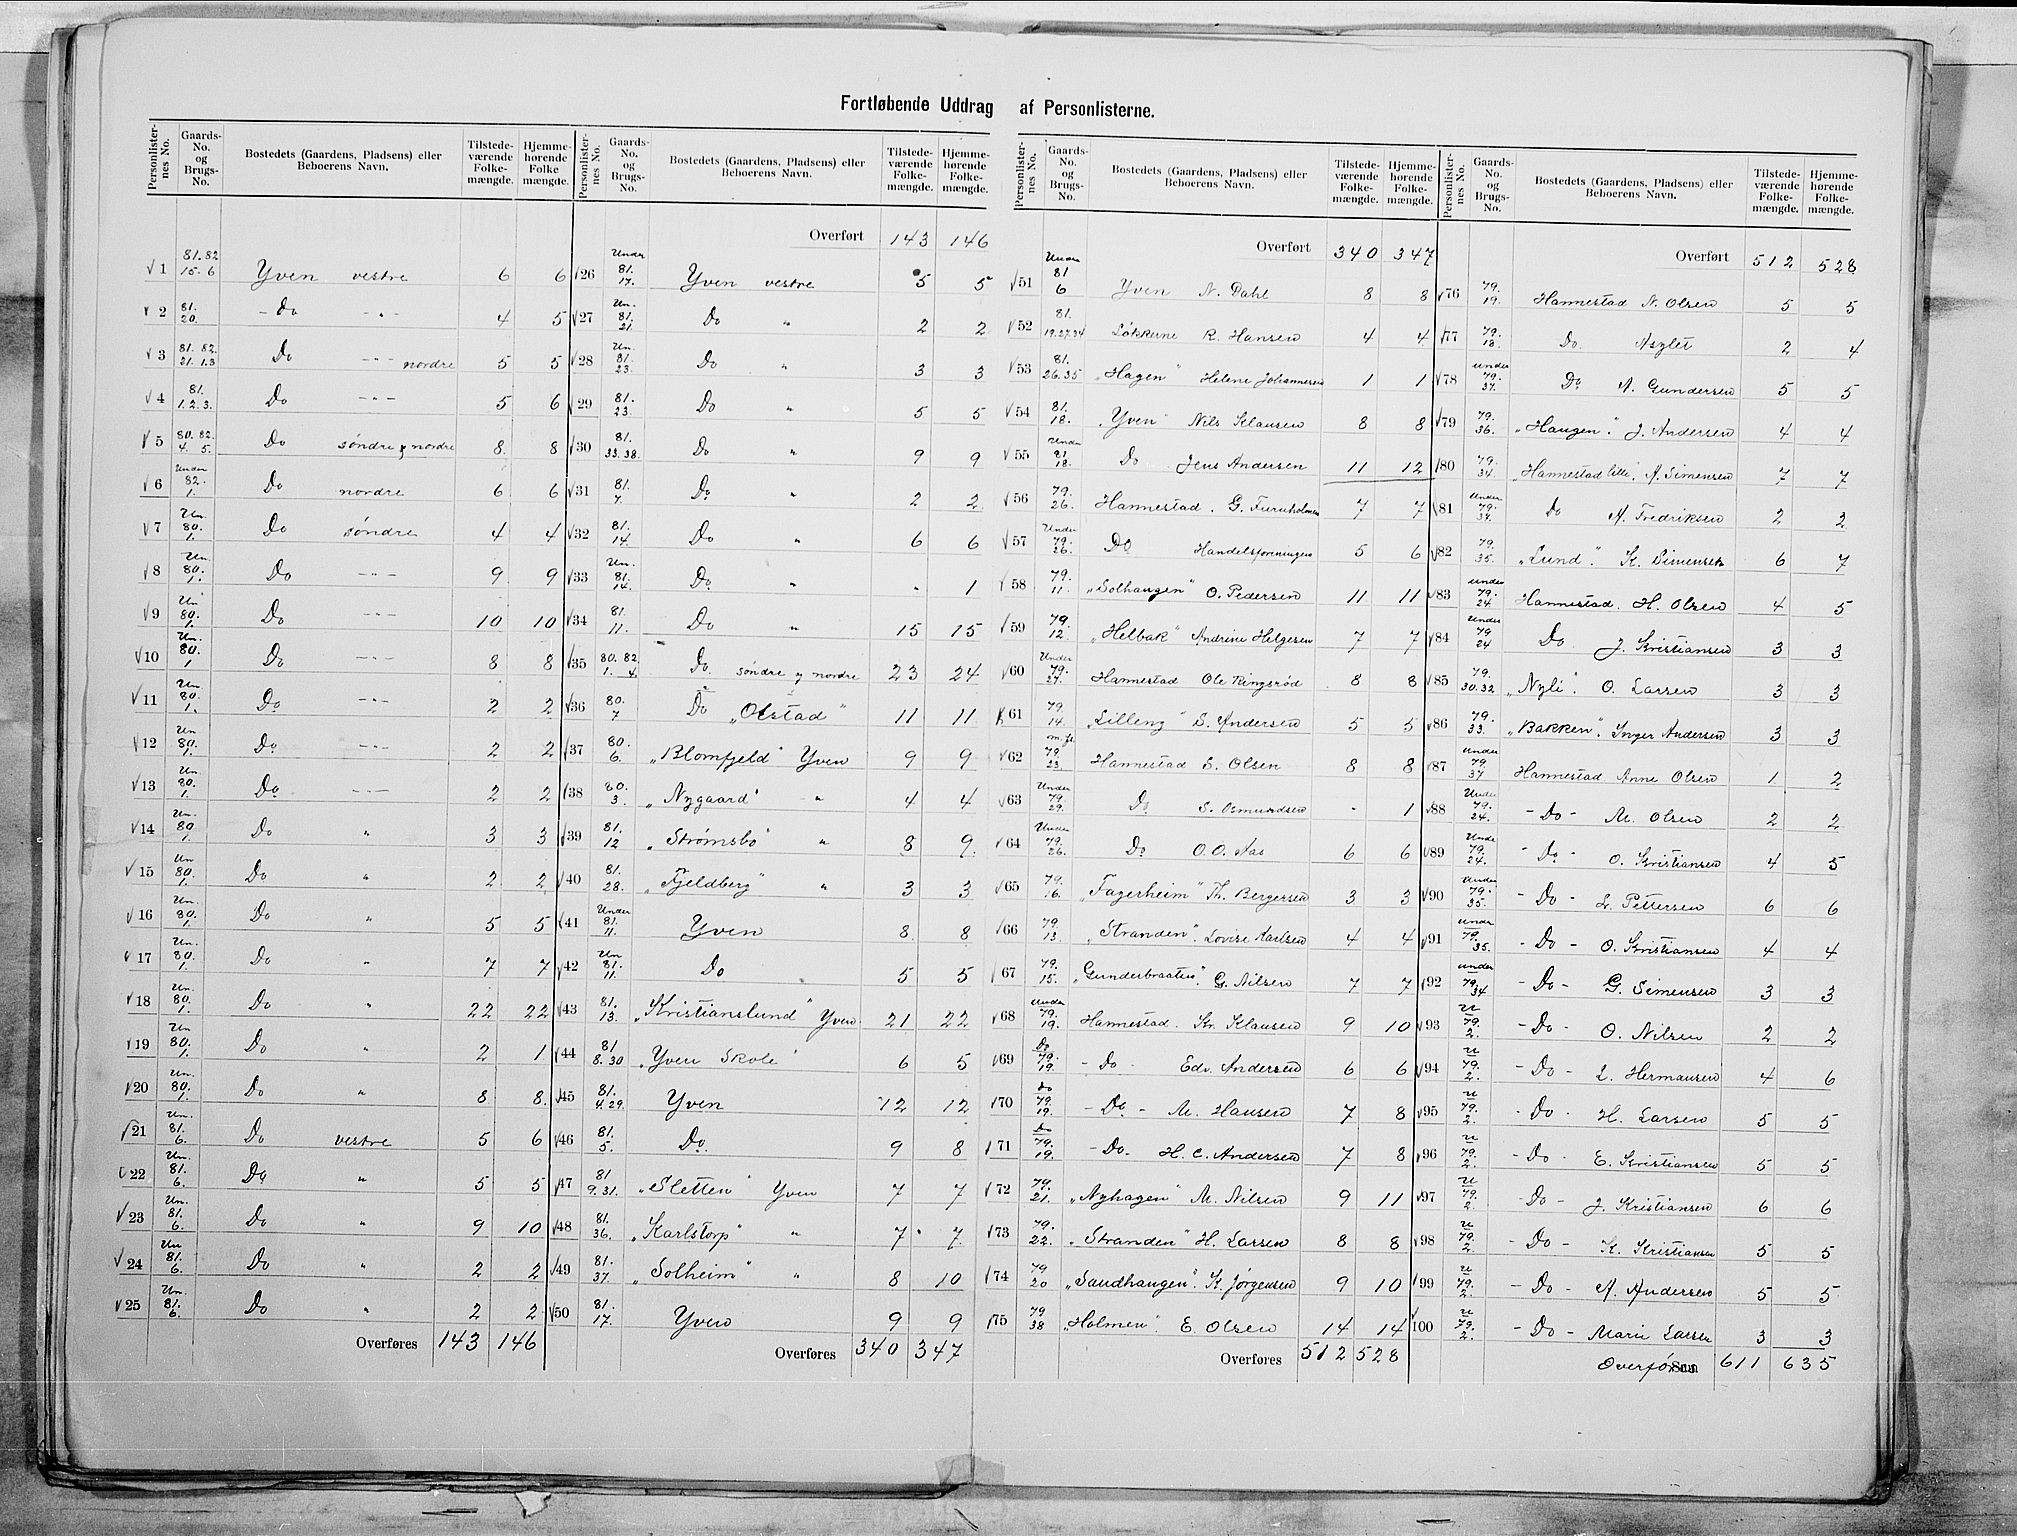 Fortløbende Uddrag af Personlisterne.
Personlister-nes No. | Gaards-No. og Brugs-No. | Bostedets (Gaardens, Pladsens) eller Beboerens Navn. | Tilstede-værende Folke-mængde. | Hjemme-hørende Folke mængde.
1 | 81. 82 15. 6 | Yven vestre | 6 | 6
2 | 81. 20. | - Do -"- | 4 | 5
3 | 81. 82. 21. 1.3 | Do -"- nordre | 5 | 5
4 | 81. 1. 2. 3. | Do -"- | 5 | 6
5 | 80. 82. 4. 5. | Do søndre og nordre | 8 | 8
6 | Under 82. 1. | Do nordre | 6 | 6
7 | Un. 80. 1. | Do søndre | 4 | 4
8 | Un 80. 1. | Do -"- | 9 | 9
9 | Un 80. 1. | Do -"- | 10 | 10
10 | Un. 80. 1 | Do -"- | 8 | 8
11 | Un 80. 1. | Do -"- | 2 | 2
12 | Un 80. 1. | Do -"- | 2 | 2
13 | Un 80. 1. | Do -"- | 2 | 2
14 | Un. 80 1. | Do " | 3 | 3
15 | Un 80. 1. | Do " | 2 | 2
16 | Un. 80. 1. | Do " | 5 | 5
17 | Un. 80. 1. | Do " | 7 | 7
18 | Un. 80. 1. | Do " | 22 | 22
19 | Un 80. 1. | Do " | 2 | 1
20 | Un. 80. 1. | Do " | 8 | 8
21 | Un. 81. 6. | Do vestre | 5 | 6
22 | Un. 81. 6. | Do " | 5 | 5
23 | Un. 81. 6. | Do " | 9 | 10
24 | Un 81. 6. | Do " | 2 | 2
25 | Un. 81. 6. | Do " | 2 | 2
Overføres 143 146
Personlister-nes No. | Gaards-No. og Brugs-No. | Bostedets (Gaardens, Pladsens) eller Beboerens Navn. | Tilstede-værende Folke-mængde. | Hjemme-hørende Folke-mængde.
Overført 143 146
26 | Under 81. 17. | Yven vestre | 5 | 5
27 | Un. 81. 21. | Do " | 2 | 2
28 | Un. 81. 23. | Do " | 3 | 3
29 | 81. 23. | Do " | 5 | 5
30 | 81. 33. 38. | Do " | 9 | 9
31 | 81. 7. | Do " | 2 | 2
32 | 81. 14. | Do " | 6 | 6
33 | Un. 81. 14. | Do " | - | 1
34 | 81. 11. | Do " | 15 | 15
35 | 80. 82. 1. 4. | Do søndre og nordre | 23 | 24
36 | 80. 7 | Do "Olstad" | 11 | 11
37 | 80. 6. | "Blomfjeld" Yven | 9 | 9
38 | 80. 3. | "Nygaard" " | 4 | 4
39 | 81. 12 | "Strømsbo" " | 8 | 9
40 | 81. 28. | "Fjeldberg" " | 3 | 3
41 | Under 81. 11. | Yven | 8 | 8
42 | Un 81. 11. | Do | 5 | 5
43 | 81. 13. | "Kristianslund" Yven | 21 | 22
44 | 81 8. 30 | "Yven Skole" | 6 | 5
45 | 81. 4. 29. | Yven | 12 | 12
46 | 81. 5. | Do. | 9 | 8
47 | 81 9. 31. | "Sletten" Yven | 7 | 7
48 | 81. 36. | "Karlstorp" " | 7 | 7
49 | 81. 37. | "Solheim" " | 8 | 10
50 | 81. 17. | Yven | 9 | 9
Overføres 340 347
Personlister-nes No. | Gaards-No. og Brugs-No. | Bostedets (Gaardens, Pladsens) eller Beboerens Navn. | Tilstede-værende Folke-mængde. | Hjemme-hørende Folke-mængde.
Overført 340 347
51 | Under 81 6 | Yven N. Dahl | 8 | 8
52 | 81. 19.27.34 | Løkkerne R. Hansen | 4 | 4
53 | 81. 26. 35 | "Hagen" Helene Johannesen | 1 | 1
54 | 81. 18. | "Yven" Nils Klausen | 8 | 8
55 | Under 81 18. | Do Jens Andersen | 11 | 12
56 | 79. 26. | Hannestad. G. Furuholmen | 7 | 7
57 | Under 79. 26. | Do Handelsforningen | 5 | 6
58 | 79. 11. | "Solhaugen" O. Pedersen | 11 | 11
59 | 79. 12. | "Helbak" Andrine Helgesen | 7 | 7
60 | Under 79. 27. | Hannestad Ole Ringsrød | 8 | 8
61 | 79. 14. | "Lilleng" S. Andersen | 5 | 5
62 | 79. 23. | Hannestad S. Olsen | 8 | 8
63 | Under 79. 29. | Do S. Osmundsen | - | 1
64 | Under 79. 26. | Do O. O. Aas | 6 | 6
65 | 79. 16. | "Fagerheim" Th. Bergersen | 3 | 3
66 | 79. 13. | "Stranden". Lovise Karlsen | 4 | 4
67 | 79. 15. | "Gunderbraaten". G. Nilsen | 7 | 7
68 | Under 79. 19. | Hannestad. Kr. Klausen | 9 | 10
69 | Do 79. 19. | - Do - Edv. Andersen | 6 | 6
70 | do 79. 19. | - Do - M. Hansen | 7 | 8
71 | Do 79. 19. | - Do - H. C. Andersen | 7 | 8
72 | 79. 21. | "Nyhagen" M. Nilsen | 9 | 11
73 | 79. 22. | "Stranden" H. Larsen | 8 | 8
74 | 79 20 | "Sandhaugen". K. Jørgensen | 9 | 10
75 | 79 38 | "Holmen" E. Olsen | 14 | 14
Overføres 512 528
Personlister-nes No. | Gaards-No. og Brugs-No. | Bostedets (Gaardens, Pladsens) eller Beboerens Navn. | Tilstede-værende Folke-mængde. | Hjemme-hørende Folke-mængde.
Overført 512 528
76 | 79. 19. | Hannestad N. Olsen | 5 | 5
77 | 79. 18. | Do. Asylet | 2 | 4
78 | under 79. 37. | Do A. Gundersen | 5 | 5
79 | 79. 36. | "Haugen". J. Andersen | 4 | 4
80 | 79. 34. | "Hannestad lille". A. Simensen | 7 | 7
81 | Under 79. 34. | Do A. Fredriksen | 2 | 2
82 | 79. 35. | "Lund". K. Simensen | 6 | 7
83 | under 79. 24 | Hannestad. H. Olsen | 4 | 5
84 | Under 79 24 | Do J. Kristiansen | 3 | 3
85 | 79. 30.32. | "Nyli". O. Larsen | 3 | 3
86 | 79. 33. | "Bakken". Inger Andersen | 3 | 3
87 | under 79. 37 | Hannestad Anne Olsen | 1 | 2
88 | Under 79. 24. | - Do - M. Olsen | 2 | 2
89 | Unde 79. 24. | - Do - O. Kristiansen | 4 | 5
90 | Under 79. 35. | - Do - L. Pettersen | 6 | 6
91 | Under 79. 35. | - Do - O. Kristiansen | 4 | 4
92 | under 79. 34 | - Do - G. Simensen | 3 | 3
93 | U 79. 2. | - Do - O. Nilsen | 2 | 2
94 | U 79. 2. | - Do - L. Hermansen | 4 | 6
95 | U 79. 2. | - Do - H. Larsen | 5 | 5
96 | U 79. 2. | - Do - E. Kristiansen | 5 | 5
97 | U 79. 2. | - Do - J. Kristiansen | 6 | 6
98 | U 79. 2. | - Do - K. Kristiansen | 5 | 5
99 | U 79. 2. | - Do - A. Andersen | 5 | 5
100 | U 79. 2. | - Do - Marie Larsen | 3 | 3
Overføres 611 635